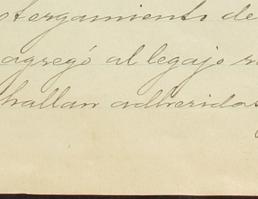 otorgamiento de
agregó al legajo
hallan adheridas